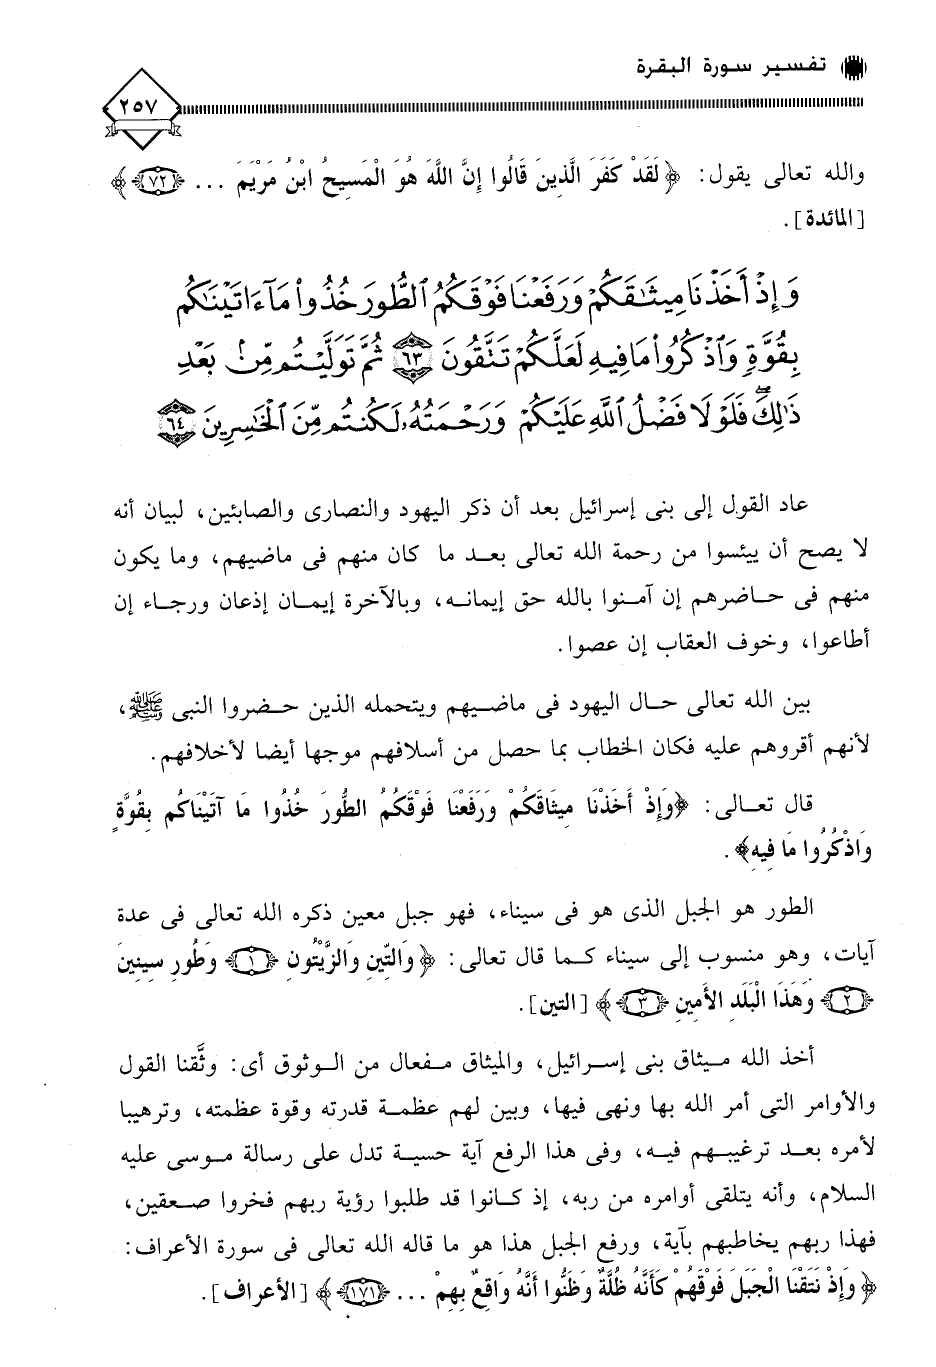 تفسير سورة البقرة
٢٥٧
والله تعالى يقول: ﴿ لَقَدْ كَفَرَ الَّذِينَ قَالُوا إِنَّ اللَّهَ هُوَ الْمَسِيحُ ابْنُ مَرْيَمَ ... ﴿٧٢﴾ ﴾
[المائدة].
وَإِذْ أَخَذْنَا مِيثَٰقَكُمْ وَرَفَعْنَا فَوْقَكُمُ ٱلطُّورَ خُذُوا۟ مَآ ءَاتَيْنَٰكُم
بِقُوَّةٍ وَٱذْكُرُوا۟ مَا فِيهِ لَعَلَّكُمْ تَتَّقُونَ ﴿٦٣﴾ ثُمَّ تَوَلَّيْتُم مِّنۢ بَعْدِ
ذَٰلِكَ ۖ فَلَوْلَا فَضْلُ ٱللَّهِ عَلَيْكُمْ وَرَحْمَتُهُۥ لَكُنتُم مِّنَ ٱلْخَٰسِرِينَ ﴿٦٤﴾
عاد القول إلى بنى إسرائيل بعد أن ذكر اليهود والنصارى والصابئين، لبيان أنه
لا يصح أن ييئسوا من رحمة الله تعالى بعد ما كان منهم فى ماضيهم، وما يكون
منهم فى حاضرهم إن آمنوا بالله حق إيمانه، وبالآخرة إيمان إذعان ورجاء إن
أطاعوا، وخوف العقاب إن عصوا.
بين الله تعالى حال اليهود فى ماضيهم ويتحمله الذين حضروا النبى ﷺ،
لأنهم أقروهم عليه فكان الخطاب بما حصل من أسلافهم موجها أيضا لأخلافهم.
قال تعالى: ﴿وَإِذْ أَخَذْنَا مِيثَاقَكُمْ وَرَفَعْنَا فَوْقَكُمُ الطُّورَ خُذُوا مَا آتَيْنَاكُم بِقُوَّةٍ
وَاذْكُرُوا مَا فِيهِ﴾.
الطور هو الجبل الذى هو فى سيناء، فهو جبل معين ذكره الله تعالى فى عدة
آيات، وهو منسوب إلى سيناء كما قال تعالى: ﴿ وَالتِّينِ وَالزَّيْتُونِ ﴿١﴾ وَطُورِ سِينِينَ
﴿٢﴾ وَهَذَا الْبَلَدِ الأَمِينِ ﴿٣﴾ ﴾ [التين].
أخذ الله ميثاق بنى إسرائيل، والميثاق مفعال من الوثوق أى: وثَّقنا القول
والأوامر التى أمر الله بها ونهى فيها، وبين لهم عظمة قدرته وقوة عظمته، وترهيبا
لأمره بعد ترغيبهم فيه، وفى هذا الرفع آية حسية تدل على رسالة موسى عليه
السلام، وأنه يتلقى أوامره من ربه، إذ كانوا قد طلبوا رؤية ربهم فخروا صعقين،
فهذا ربهم يخاطبهم بآية، ورفع الجبل هذا هو ما قاله الله تعالى فى سورة الأعراف:
﴿ وَإِذْ نَتَقْنَا الْجَبَلَ فَوْقَهُمْ كَأَنَّهُ ظُلَّةٌ وَظَنُّوا أَنَّهُ وَاقِعٌ بِهِمْ ... ﴿١٧١﴾ ﴾ [الأعراف].